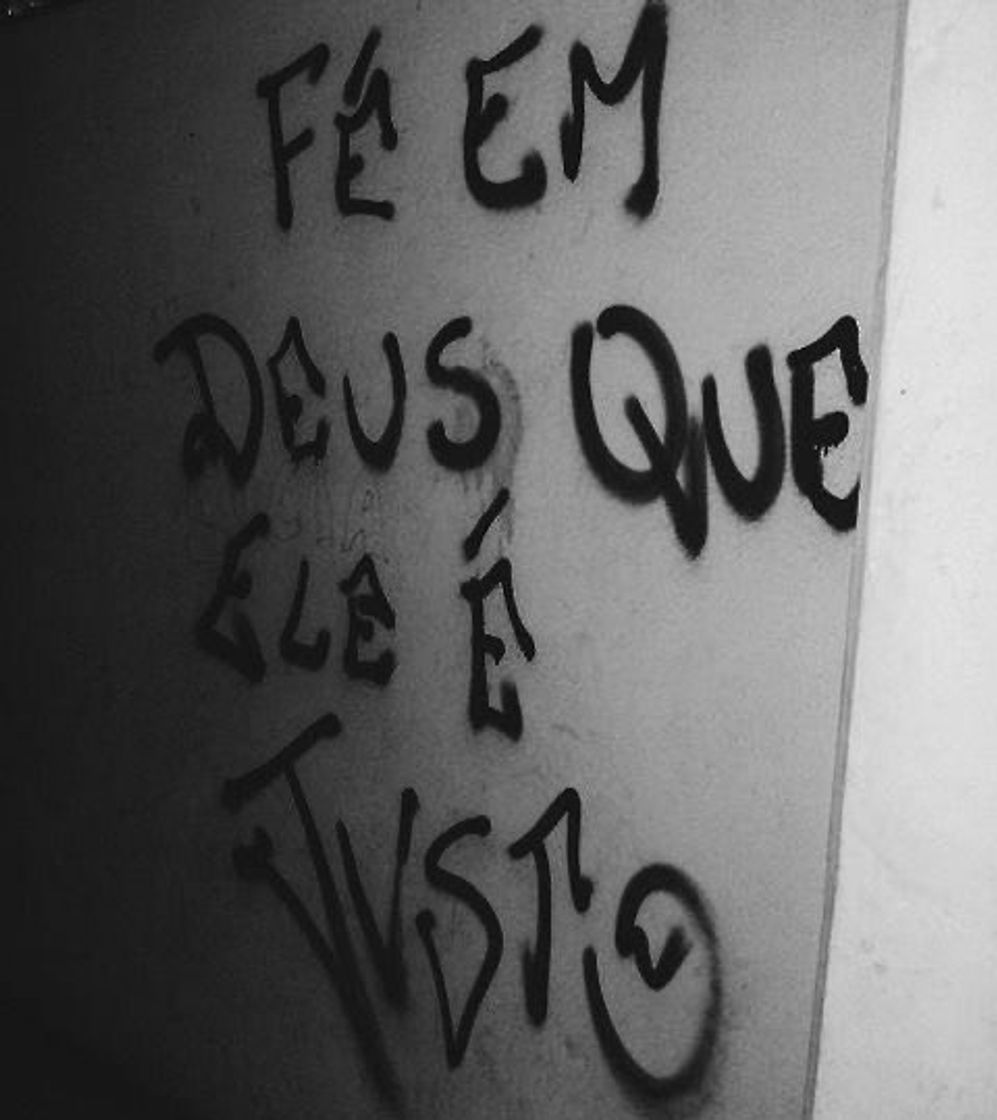 FÉ EM
DEUS QUE
ELE É
JUSTO